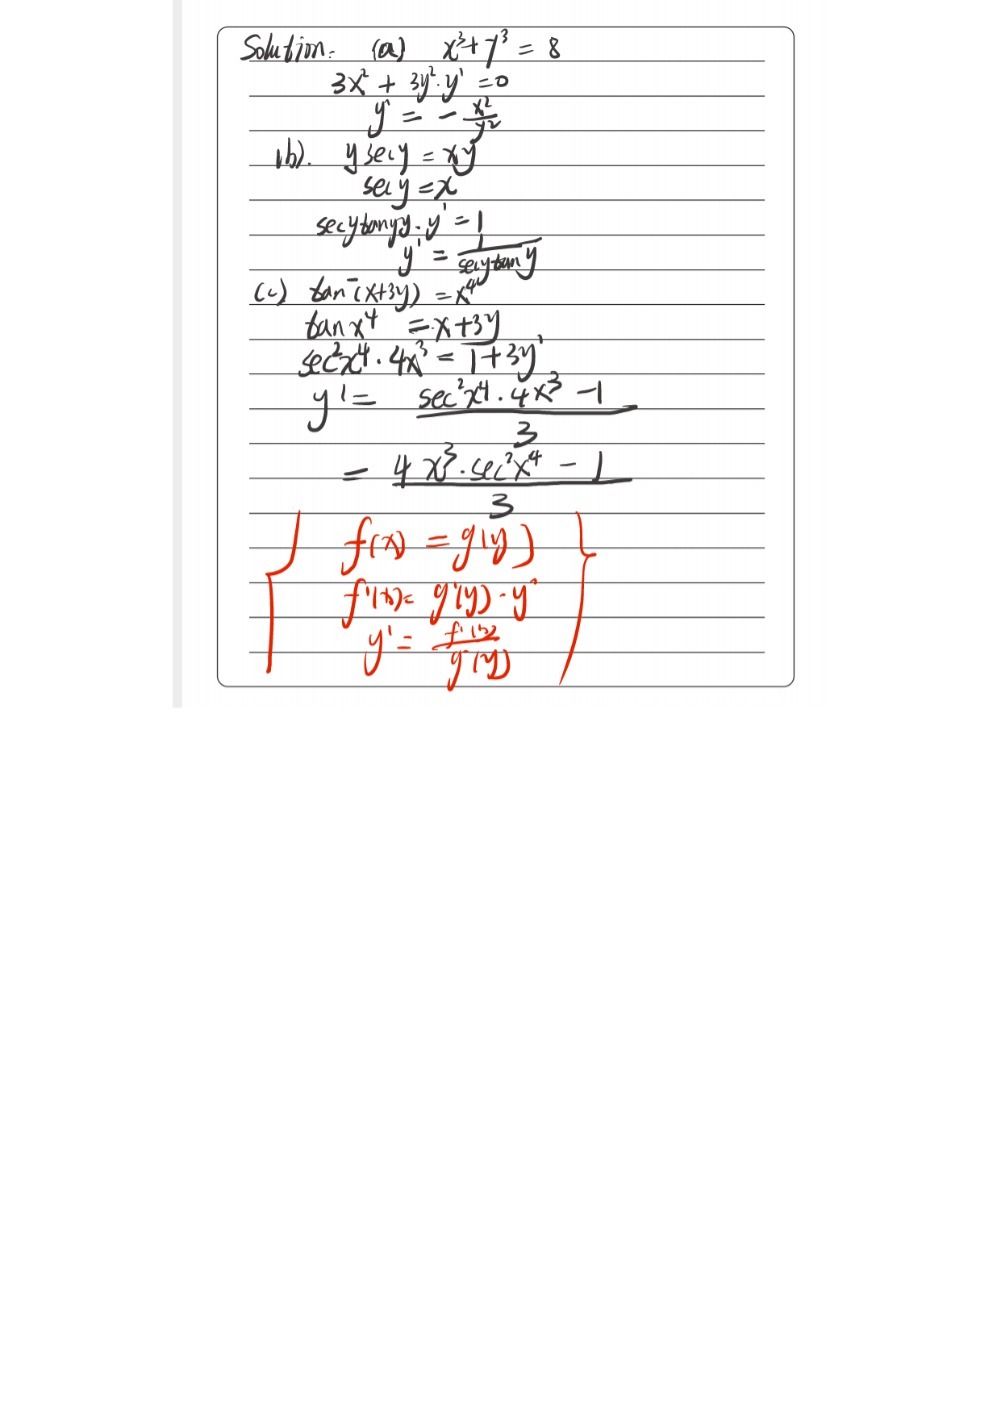 Solution: (a) x³+y³ = 8
3x² + 3y²·y' = 0
y' = - x²/y²
(b). y sec y = xy
sec y = x
sec y tan y · y' = 1
y' = 1/(sec y tan y)
(c) tan⁻(x+3y) = x⁴
tan x⁴ = x+3y
sec²x⁴ · 4x³ = 1+3y'
y' = (sec²x⁴ · 4x³ - 1)/3
= (4x³ · sec²x⁴ - 1)/3
f(x) = g(y)
f'(x) = g'(y) · y'
y' = f'(x)/g'(y)